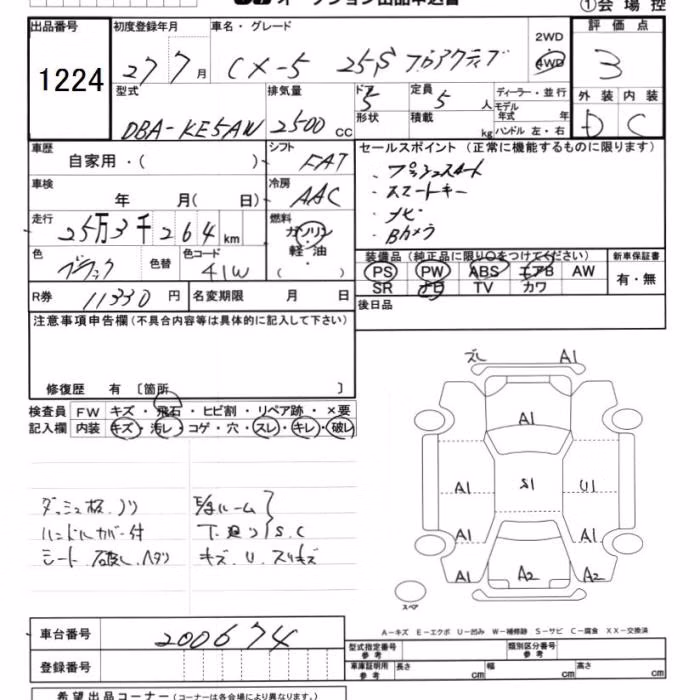 オークション出品申込書
①会場控
出品番号 初度登録年月 車名・グレード 2WD 評価点
1224 27 7月 CX-5 25S プロアクティブ 4WD 3
型式 排気量 ドア 定員 ディーラー・並行 外装 内装
DBA-KE5AW 2500 CC 5 5人 モデル年式 年 D C
形状 積載 kg ハンドル 左・右
車歴 シフト セールスポイント(正常に機能するものに限ります)
自家用・( ) FAT ・プッシュスタート
車検 冷房 ・スマートキー
年 月( 日) AAC ・ナビ
走行 燃料 ・Bカメラ
25万3千264km ガソリン
軽・油
・( )
色 色替 色コード 装備品(純正品に限り○をつけてください) 新車保証書
ブラック 41W PS PW ABS エアB AW 有・無
SR ナビ TV カワ
R券 11330円 名変期限 月 日 後日品
注意事項申告欄(不具合内容等は具体的に記入して下さい)
修復歴 有 〔箇所 〕
検査員 FW キズ・飛石・ヒビ割・リペア跡・×要
記入欄 内装 キズ・汚レ・コゲ・穴・スレ・キレ・破レ
ズレ A1
A1
A1 S1 U1
A1 A1
A1 A2 A2
スペア
ダッシュ板.ノリ
ハンドルカバー付 下廻り S.C
シート 破レ.ヘタリ キズ.U.スリキズ
A-キズ E-エクボ U-凹み W-補修跡 S-サビ C-腐食 XX-交換済
車台番号 200674 型式指定番号 参考 類別区分番号 参考
登録番号 車庫証明用 参考 長さ cm 幅 cm 高さ cm
希望出品コーナー(コーナーは各会場により異なります。)